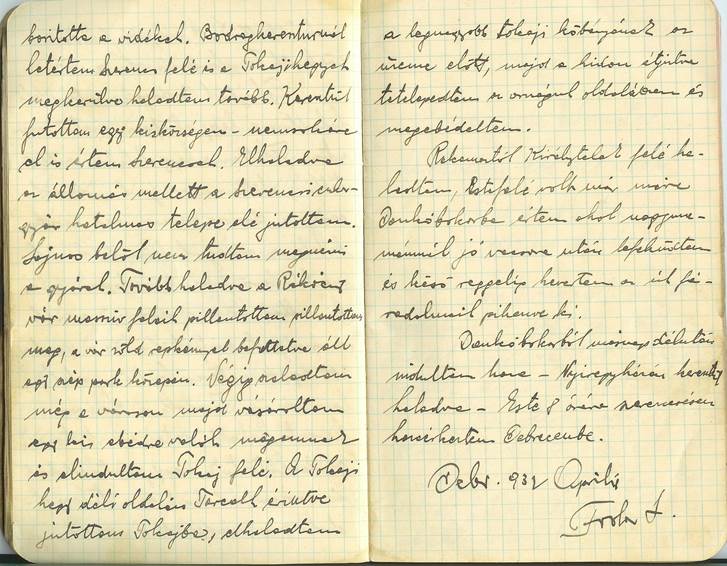 borította a vidéket. Bodrogkereszturnál
letértem Szerencs felé is a Tokaji hegyet
megkerülve haladtam tovább. Keresztül
jutottam egy kisközségen – nemsokára
el is értem Szerencset. Elhaladva
az állomás mellett a szerencsi cukor-
gyár hatalmas telepe elé jutottam.
Sajnos belöl nem tudtam megnézni
a gyárat. Tovább haladva a Rákóczi
vár masszív falait pillantottam pillantottam
meg, a vár zöld repkénnyel befuttatva áll
egy szép park közepén. Végig szaladtam
még a városon majd vásároltam
egy kis ebédre valót magamnak
és elindultam Tokaj felé. A Tokaji
hegy déli oldalán Tarcalt érintve
jutottam Tokajba, elhaladtam
a legnagyobb tokaji kőbányának az
üzeme előtt, majd a hidon átjutva
letelepedtem az országút oldalában és
megebédeltem.
Rakamaztól Királytelek felé ha-
ladtam, Estefelé volt már mire
Dankóbokorba értem ahol nagyma-
mánnál jó vacsora után lefeküdtem
és késő reggelig hevertem az út fá-
radalmait pihenve ki.
Dankóbokorból másnap délután
indultam haza – Nyiregyházán keresztül
haladva – Este 8 órára szerencsésen
hazaérkeztem Debrecenbe.
Debr. 932 Április